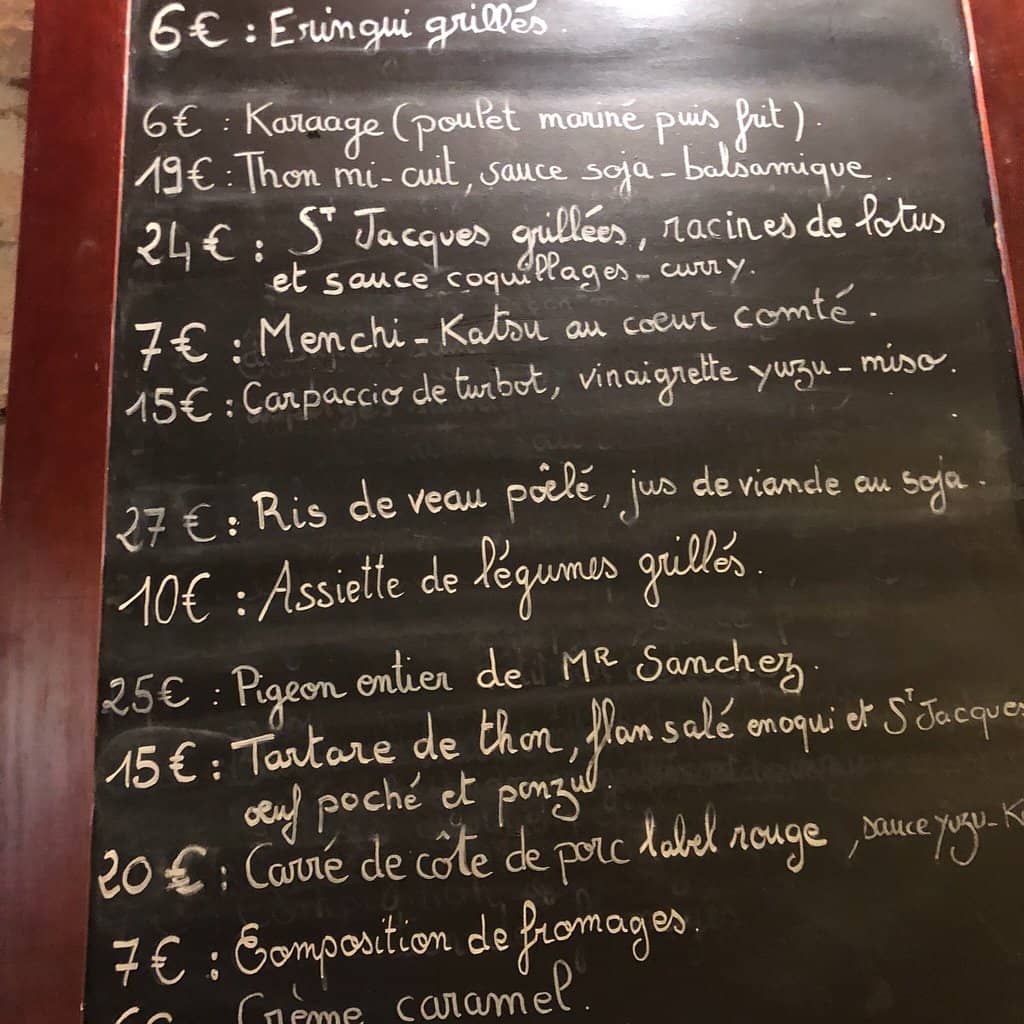 6€ : Eringui grillés.
6€ : Karaage (poulet mariné puis frit).
19€ : Thon mi-cuit, sauce soja-balsamique.
24€ : Sᵀ Jacques grillées, racines de lotus
et sauce coquillages-curry.
7€ : Menchi-Katsu au coeur comté.
15€ : Carpaccio de turbot, vinaigrette yuzu-miso.
27€ : Ris de veau pôêlé, jus de viande au soja.
10€ : Assiette de légumes grillés.
25€ : Pigeon entier de Mᴿ Sanchez.
15€ : Tartare de thon, flan salé enoqui et Sᵀ Jacques
oeuf poché et ponzu.
20€ : Carré de côte de porc label rouge, sauce yuzu-K
7€ : Composition de fromages.
6€ Crème caramel.